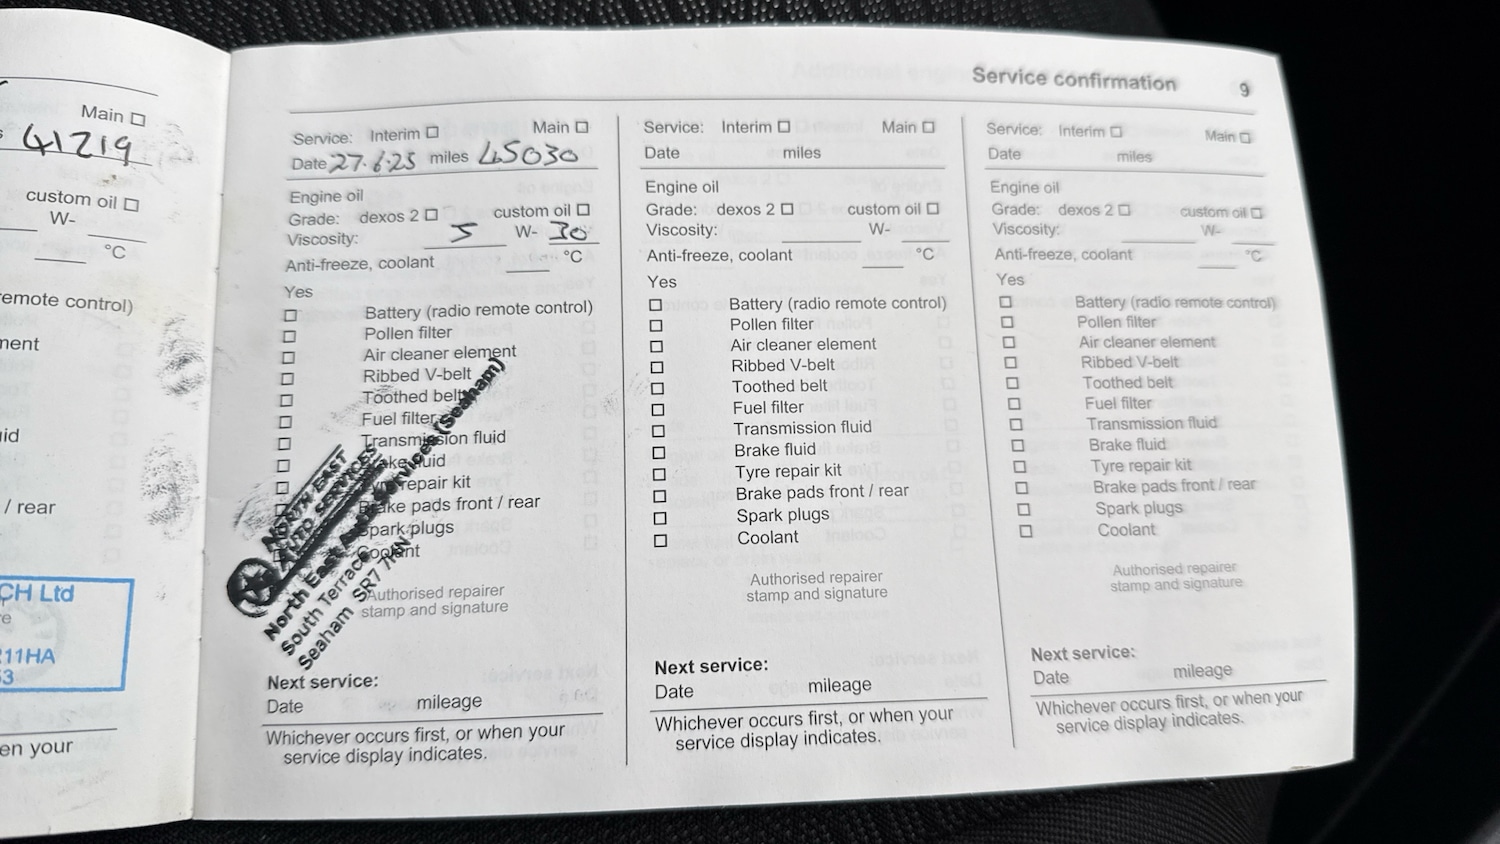 Main
41219
custom oil
W-
°C
emote control)
ment
uid
/ rear
CH Ltd
11HA
en your
Service confirmation 9
Service: Interim Main
Date 27.6.25 miles 45030
Engine oil
Grade: dexos 2 custom oil
Viscosity: 5 W- 30
Anti-freeze, coolant °C
Yes
Battery (radio remote control)
Pollen filter
Air cleaner element
Ribbed V-belt
Toothed belt
Fuel filter
Transmission fluid
Brake fluid
Tyre repair kit
Brake pads front / rear
Spark plugs
Coolant
NORTH EAST
AUTO SERVICES
North East (Seaham)
South Terrace
Seaham SR7
Authorised repairer
stamp and signature
Next service:
Date mileage
Whichever occurs first, or when your
service display indicates.
Service: Interim Main
Date miles
Engine oil
Grade: dexos 2 custom oil
Viscosity: W-
Anti-freeze, coolant °C
Yes
Battery (radio remote control)
Pollen filter
Air cleaner element
Ribbed V-belt
Toothed belt
Fuel filter
Transmission fluid
Brake fluid
Tyre repair kit
Brake pads front / rear
Spark plugs
Coolant
Authorised repairer
stamp and signature
Next service:
Date mileage
Whichever occurs first, or when your
service display indicates.
Service: Interim Main
Date miles
Engine oil
Grade: dexos 2 custom oil
Viscosity: W-
Anti-freeze, coolant °C
Yes
Battery (radio remote control)
Pollen filter
Air cleaner element
Ribbed V-belt
Toothed belt
Fuel filter
Transmission fluid
Brake fluid
Tyre repair kit
Brake pads front / rear
Spark plugs
Coolant
Authorised repairer
stamp and signature
Next service:
Date mileage
Whichever occurs first, or when your
service display indicates.